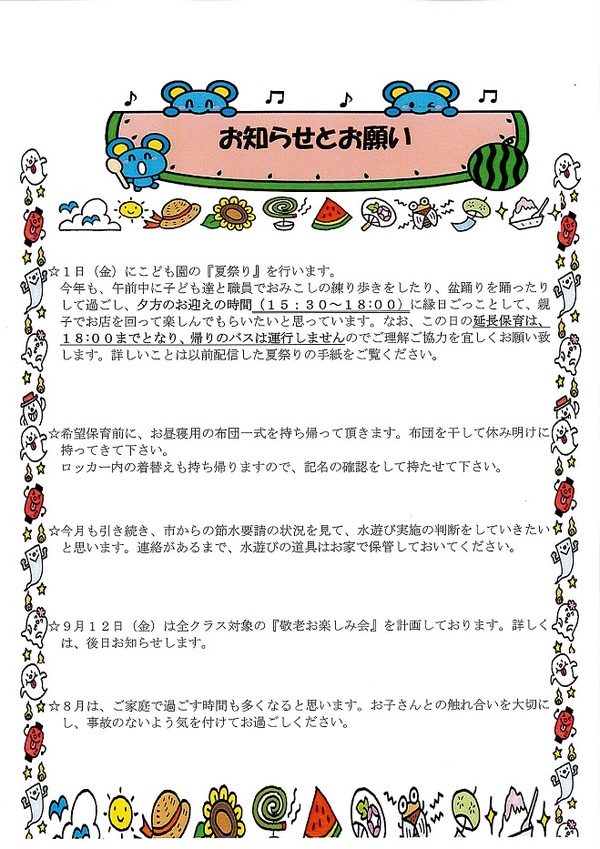 お知らせとお願い
☆1日（金）にこども園の『夏祭り』を行います。
今年も、午前中に子ども達と職員でおみこしの練り歩きをしたり、盆踊りを踊ったり
して過ごし、夕方のお迎えの時間（15：30～18:00）に縁日ごっことして、親
子でお店を回って楽しんでもらいたいと思っています。なお、この日の延長保育は、
18:00までとなり、帰りのバスは運行しませんのでご理解ご協力を宜しくお願い致
します。詳しいことは以前配信した夏祭りの手紙をご覧ください。
☆希望保育前に、お昼寝用の布団一式を持ち帰って頂きます。布団を干して休み明けに
持ってきて下さい。
ロッカー内の着替えも持ち帰りますので、記名の確認をして持たせて下さい。
☆今月も引き続き、市からの節水要請の状況を見て、水遊び実施の判断をしていきたい
と思います。連絡があるまで、水遊びの道具はお家で保管しておいてください。
☆9月12日（金）は全クラス対象の『敬老お楽しみ会』を計画しております。詳しく
は、後日お知らせします。
☆8月は、ご家庭で過ごす時間も多くなると思います。お子さんとの触れ合いを大切に
し、事故のないよう気を付けてお過ごしください。